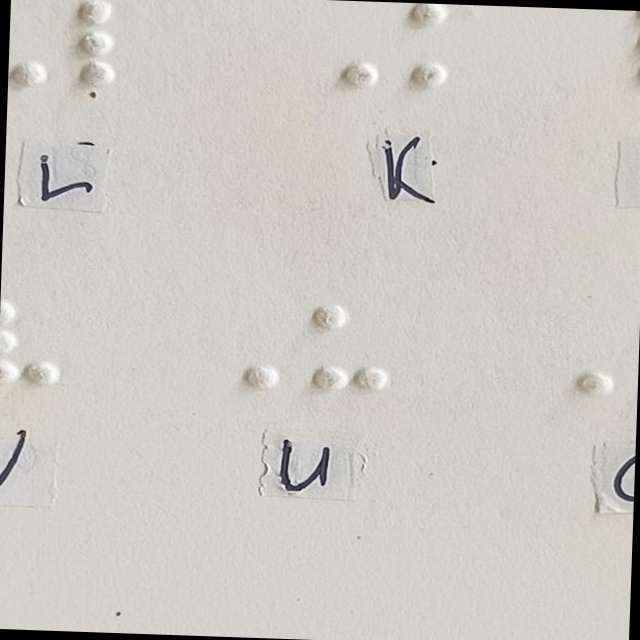 ⠠⠇ ⠠⠅
L K
⠧ ⠠⠥ ⠠
U